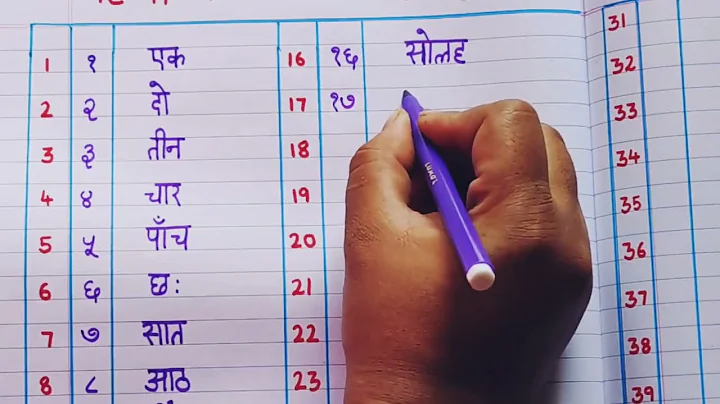 1 १ एक
2 २ दो
3 ३ तीन
4 ४ चार
5 ५ पाँच
6 ६ छः
7 ७ सात
8 ८ आठ
16 १६ सोलह
17 १७
18
19
20
21
22
23
31
32
33
34
35
36
37
38
39